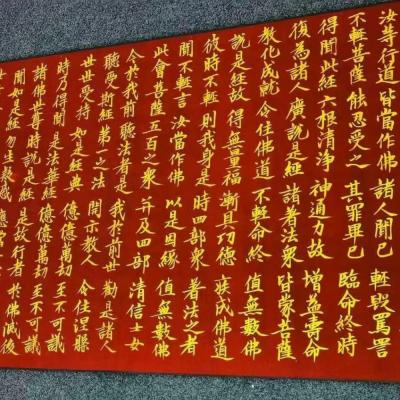 汝等行道 皆當作佛 諸人聞已 輕毀罵詈
不輕菩薩 能忍受之 其罪畢已 臨命終時
得聞此經 六根清淨 神通力故 增益壽命
復為諸人 廣說是經 諸著法眾 皆蒙菩薩
教化成就 令住佛道 不輕命終 值無數佛
說是經故 得無量福 漸具功德 疾成佛道
彼時不輕 則我身是 時四部眾 著法之者
聞不輕言 汝當作佛 以是因緣 值無數佛
此會菩薩 五百之眾 并及四部 清信士女
今於我前 聽法者是 我於前世 勸是諸人
聽受斯經 第一之法 開示教人 令住涅槃
世世受持 如是經典 億億萬劫 至不可議
時乃得聞 是法華經 億億萬劫 至不可議
諸佛世尊 時說是經 是故行者 於佛滅後
聞如是經 勿生疑惑 應
世世